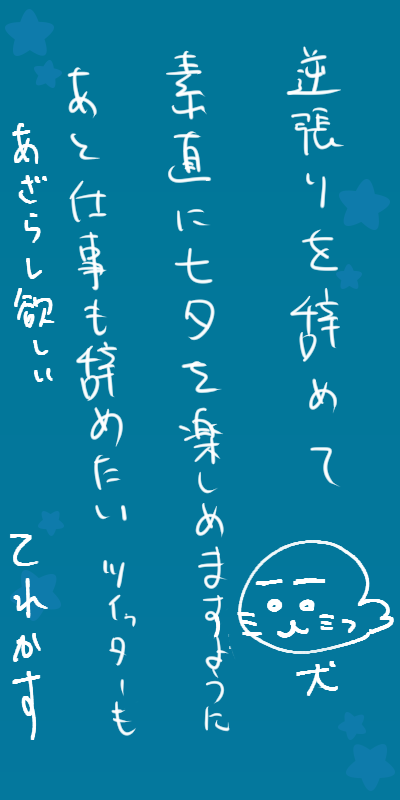 逆張りを辞めて
素直に七夕を楽しめますように
あと仕事も辞めたい ツイッターも
あざらし欲しい
てれかす
犬